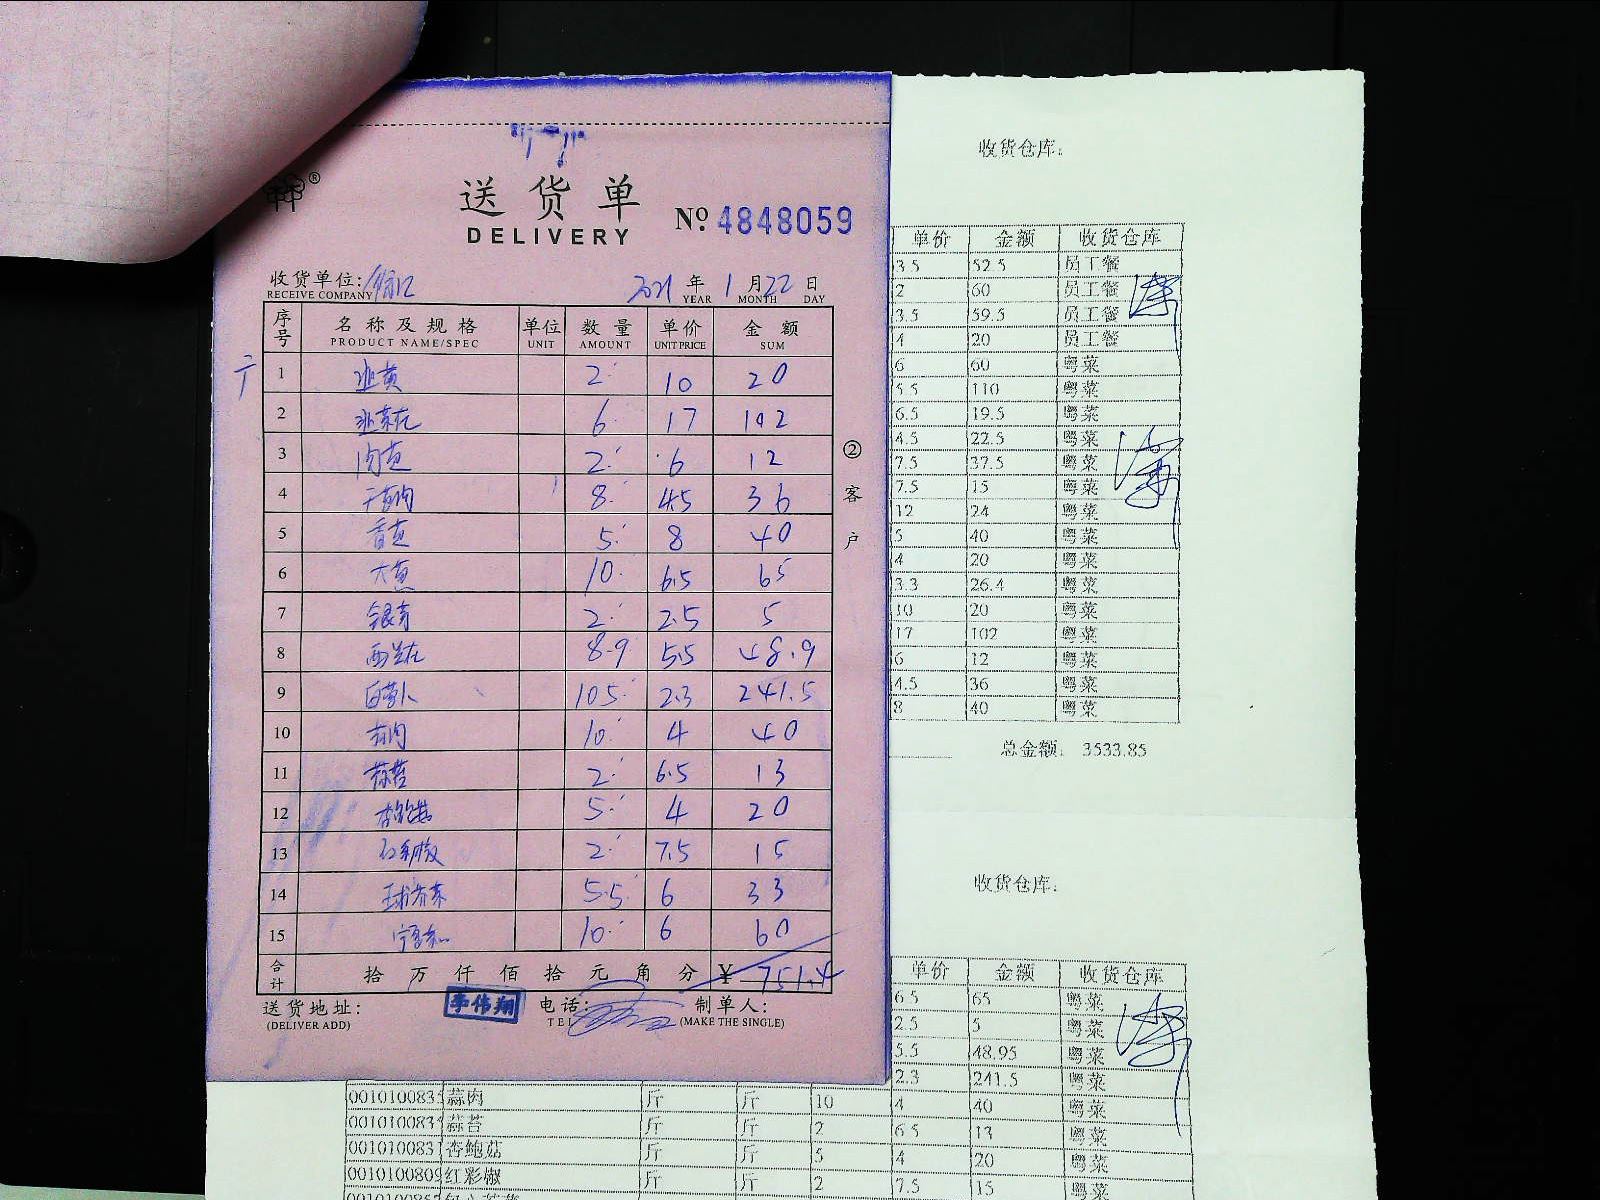 送货单
DELIVERY
№ 4848059
收货单位:
RECEIVE COMPANY
2021 年 1 月 22 日
YEAR MONTH DAY
序号 名称及规格 单位 数量 单价 金额
PRODUCT NAME/SPEC UNIT AMOUNT UNIT PRICE SUM
1 韭黄 2 10 20
2 韭菜花 6 17 102
3 肉葱 2 6 12
4 干葱肉 8 4.5 36
5 香葱 5 8 40
6 大葱 10 6.5 65
7 银芽 2 2.5 5
8 西兰花 8.9 5.5 48.9
9 白萝卜 105 2.3 241.5
10 蒜肉 10 4 40
11 蒜苔 2 6.5 13
12 杏鲍菇 5 4 20
13 红彩椒 2 7.5 15
14 球芥菜 5.5 6 33
15 10 6 60
合计 拾 万 仟 佰 拾 元 角 分 ¥ 751.4
送货地址:
(DELIVER ADD)
李伟翔
电话:
TEL
制单人:
(MAKE THE SINGLE)
② 客户
收货仓库:
单价 金额 收货仓库
3.5 52.5 员工餐
2 60 员工餐
3.5 59.5 员工餐
4 20 员工餐
6 60 粤菜
5.5 110 粤菜
6.5 19.5 粤菜
4.5 22.5 粤菜
7.5 37.5 粤菜
7.5 15 粤菜
12 24 粤菜
5 40 粤菜
4 20 粤菜
3.3 26.4 粤菜
10 20 粤菜
17 102 粤菜
6 12 粤菜
4.5 36 粤菜
8 40 粤菜
总金额: 3533.85
收货仓库:
单价 金额 收货仓库
6.5 65 粤菜
2.5 5 粤菜
5.5 48.95 粤菜
2.3 241.5 粤菜
001010083 蒜肉 斤 斤 10 4 40 粤菜
001010083 蒜苔 斤 斤 2 6.5 13 粤菜
001010083 杏鲍菇 斤 斤 5 4 20 粤菜
001010080 红彩椒 斤 斤 2 7.5 15 粤菜